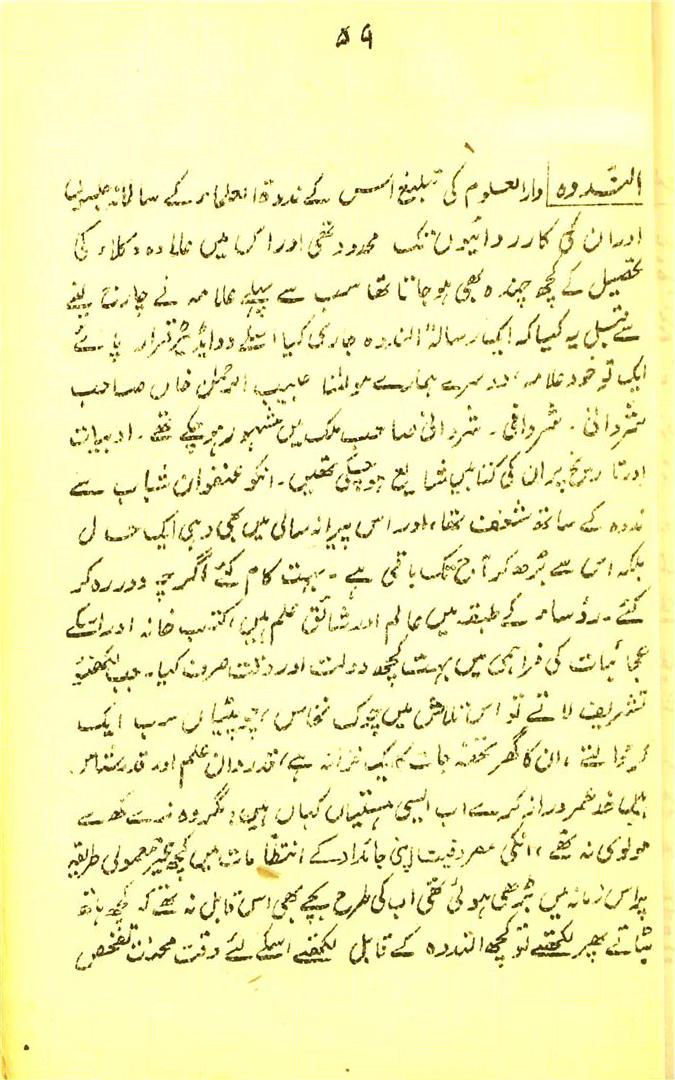 ۵۹
الندوہ دارالعلوم کی تبلیغ اس کے ندوۃ العلماء کے سالانہ جلسوں
اور ان کی کارروائیوں تک محدود تھی اور اس میں علاوہ وکلاء کی
تحصیل کے کچھ چندہ بھی ہو جاتا تھا سب سے پہلے علامہ نے چارج لینے
سے قبل یہ کیا کہ ایک رسالہ الندوہ جاری کیا اسکے دو ایڈیٹر قرار پائے
ایک تو خود علامہ، دوسرے ہمارے مولٰنا حبیب الرحمٰن خاں صاحب
شروانی۔ شروانی۔ شروانی صاحب ملک میں مشہور ہو چکے تھے۔ ادبیات
اور تاریخ پر ان کی کتابیں شایع ہو چکی تھیں۔ انکو عنفوان شباب سے
ندوہ کے ساتھ شغف تھا، اور اس پیرانہ سالی میں بھی وہی ایک حال
بلکہ اس سے بڑھ کر آج تک باقی ہے۔ بہت کام کئے اگرچہ دور رہ کر
کئے۔ رؤساء کے طبقہ میں عالم اور شائق علم ہیں، کتب خانہ اور اسکے
عجائبات کی فراہمی میں بہت کچھ دولت اور وقت صرف کیا۔ جب لکھنؤ
تشریف لاتے تو اس تلاش میں چوک نخاس، چوپٹیاں سب ایک
کر ڈالتے، ان کا گھر تحفہ جات کا ایک خزانہ ہے، قدردان علم اور قدر شناس
ہیں خدا عمر دراز کرے اب ایسی ہستیاں کہاں ہیں، مگر وہ نرے کھرے
مولوی نہ تھے، انکی مصروفیت اپنی جائداد کے انتظامات میں کچھ غیر معمولی طریقہ
پر اس زمانہ میں بڑھی ہوئی تھی اب کی طرح بچے بھی اس قابل نہ تھے کہ کچھ ہاتھ
بٹاتے پھر لکھتے تو کچھ الندوہ کے قابل لکھتے اسکے لئے وقت محنت تفحص